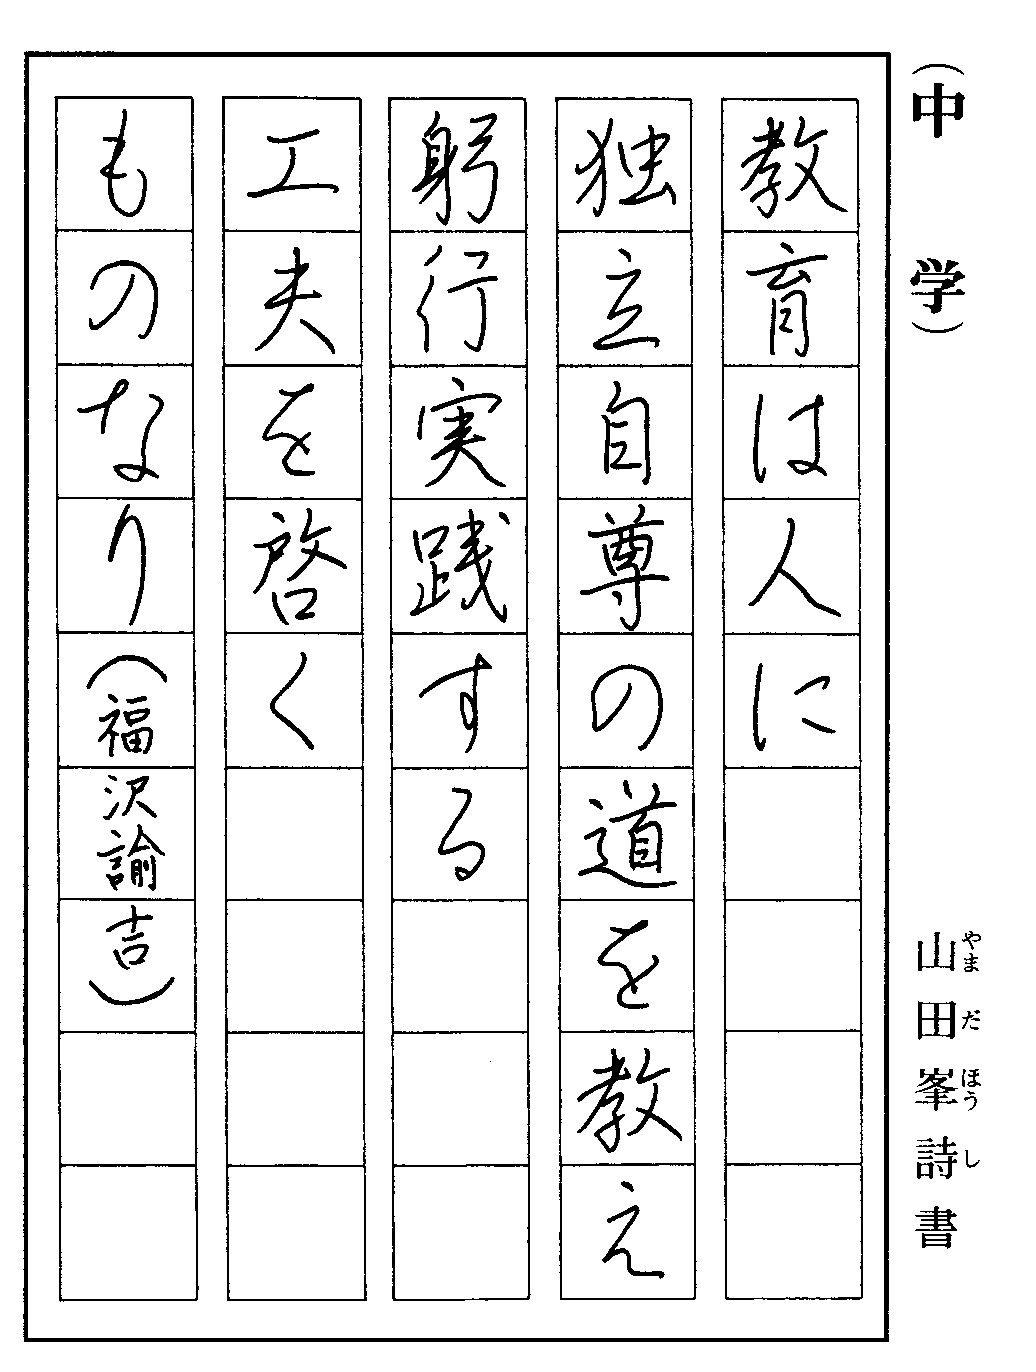 （中学）
教育は人に
独立自尊の道を教え
躬行実践する
工夫を啓く
ものなり（福沢諭吉）
山田峯詩書
やまだほうし